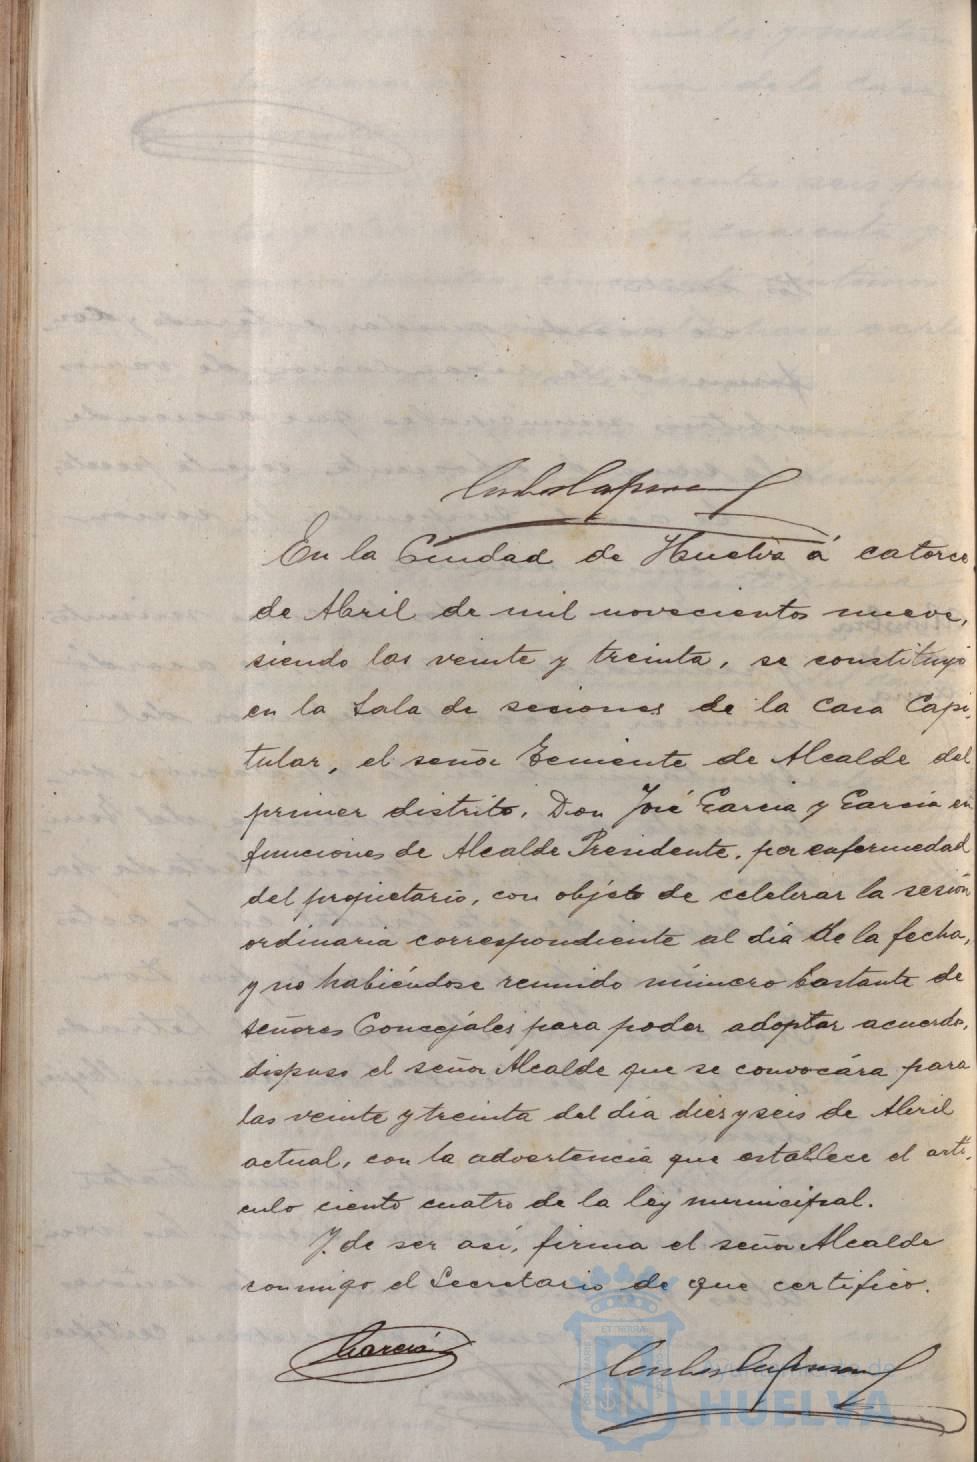 En la Ciudad de Huelva á catorce
de Abril de mil novecientos nueve,
siendo las veinte y treinta, se constituyó
en la Sala de sesiones de la Casa Capi-
tular, el señor Teniente de Alcalde del
primer distrito, Don José Garcia y Garcia en
funciones de Alcalde Presidente, por enfermedad
del propietario, con objeto de celebrar la sesión
ordinaria correspondiente al dia de la fecha,
y no habiéndose reunido número bastante de
señores Concejales para poder adoptar acuerdo,
dispuso el señor Alcalde que se convocára para
las veinte y treinta del dia diez y seis de Abril
actual, con la advertencia que establece el artí-
culo ciento cuatro de la ley municipal.
Y de ser así, firma el señor Alcalde
conmigo el Secretario de que certifico.
Garcia
HUELVA